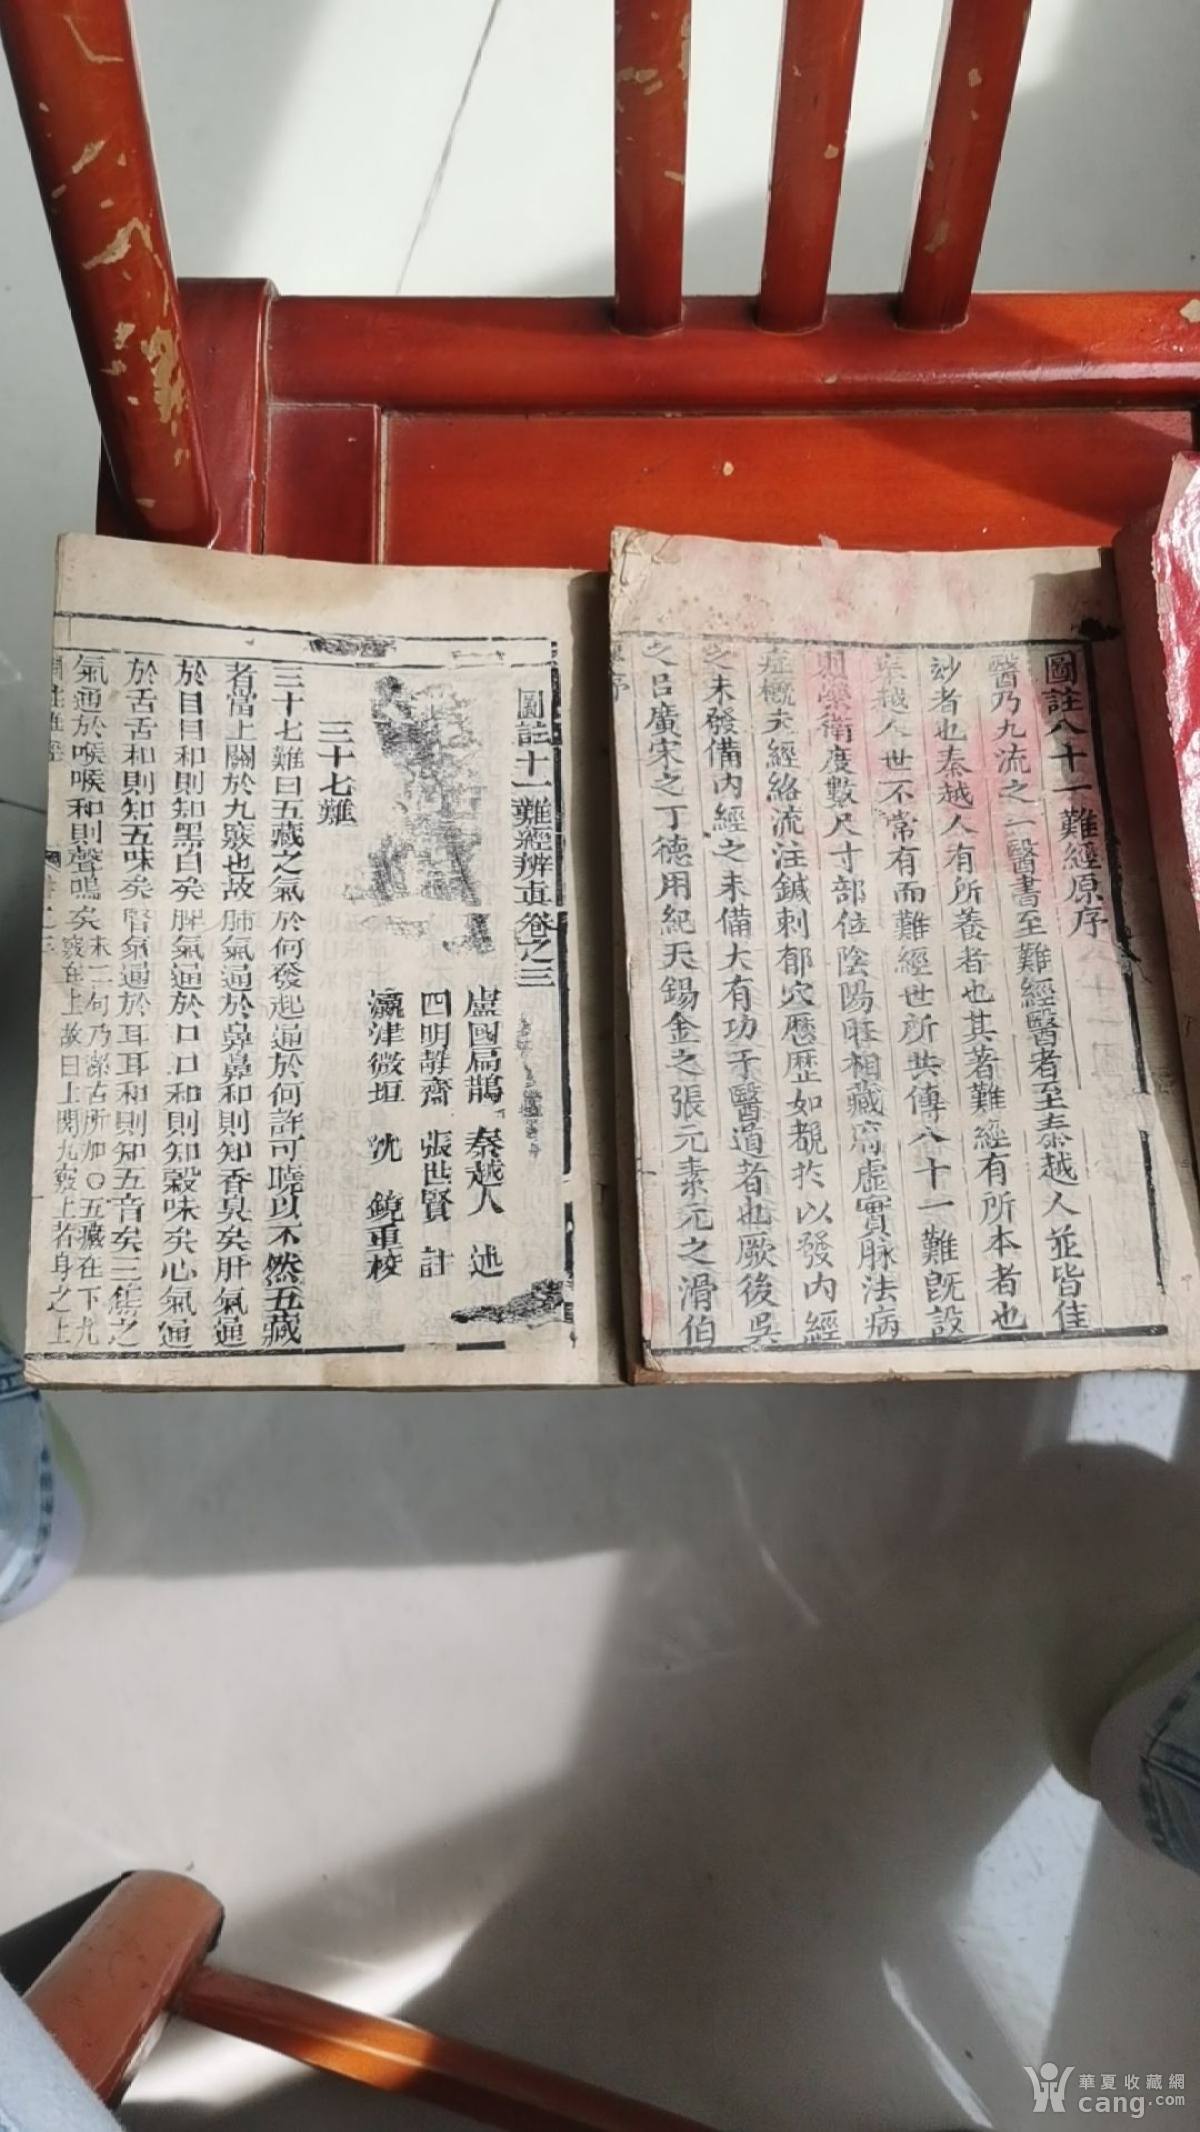 圖註八十一難經原序
醫乃九流之一醫書至難經醫者至秦越人並皆佳
妙者也秦越人有所養者也其著難經有所本者也
秦越人世不常有而難經世所共傳八十一難既設
則榮衛度數尺寸部位陰陽旺相藏府虛實脉法病
症概夫經絡流注鍼刺郁穴歷歷如覩於以發內經
之未發備內經之未備大有功于醫道者也厥後吳
之呂廣宋之丁德用紀天錫金之張元素元之滑伯
圖註十一難經辨真卷之三
盧國扁鵲 秦越人 述
四明靜齋 張世賢 註
瀛津微垣 沈 鏡重校
三十七難
三十七難曰五藏之氣於何發起通於何許可曉以不然五藏
者當上關於九竅也故肺氣通於鼻鼻和則知香臭矣肝氣通
於目目和則知黑白矣脾氣通於口口和則知穀味矣心氣通
於舌舌和則知五味矣腎氣通於耳耳和則知五音矣三焦之
氣通於喉喉和則聲鳴矣
末二句乃潔古所加〇五藏在下九
竅在上故曰上關九竅上者身之上
華夏收藏網
cang.com